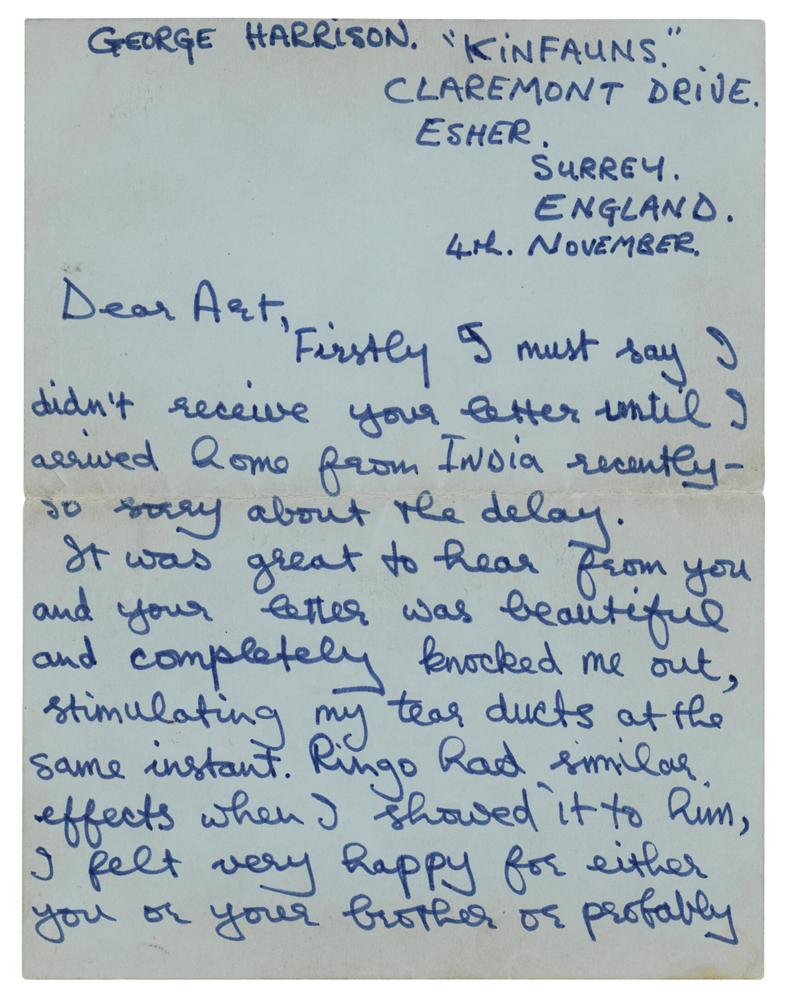 GEORGE HARRISON. "KINFAUNS."
CLAREMONT DRIVE.
ESHER.
SURREY.
ENGLAND.
4th. NOVEMBER.
Dear Art,
Firstly I must say I
didn't receive your letter until I
arrived home from INDIA recently-
so sorry about the delay.
It was great to hear from you
and your letter was beautiful
and completely knocked me out,
stimulating my tear ducts at the
same instant. Ringo had similar
effects when I showed it to him,
I felt very happy for either
you or your brother or probably